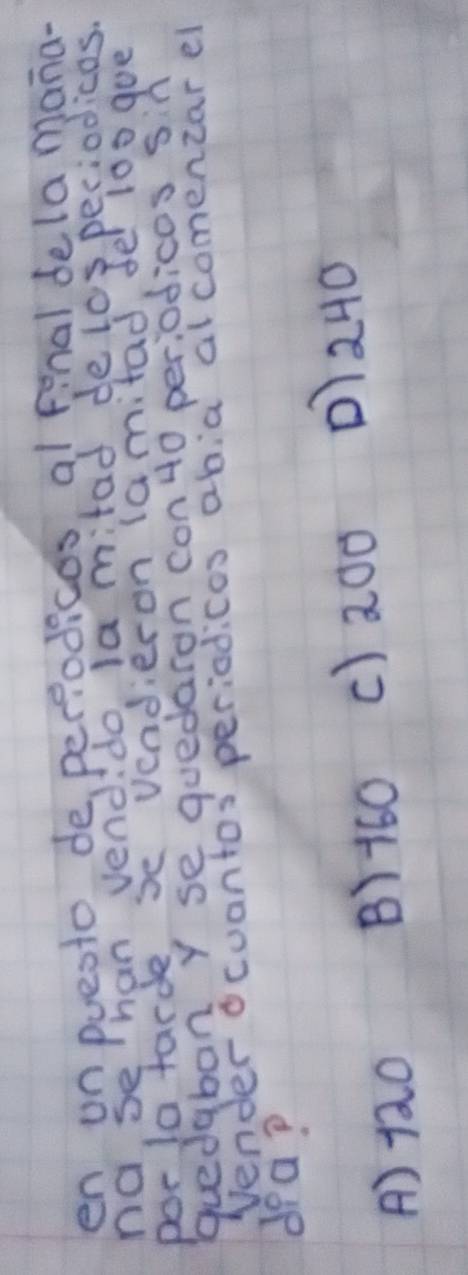 en un puesto de periodicos al final de la maña-
na se han vendido la mitad de los periodicos.
por la tarde se vendieron la mitad de los que
quedaban y se quedaron con 40 periodicos sin
vender ¿cuantos periodicos abia al comenzar el
dia?
A) 120 B) 160 C) 200 D) 240